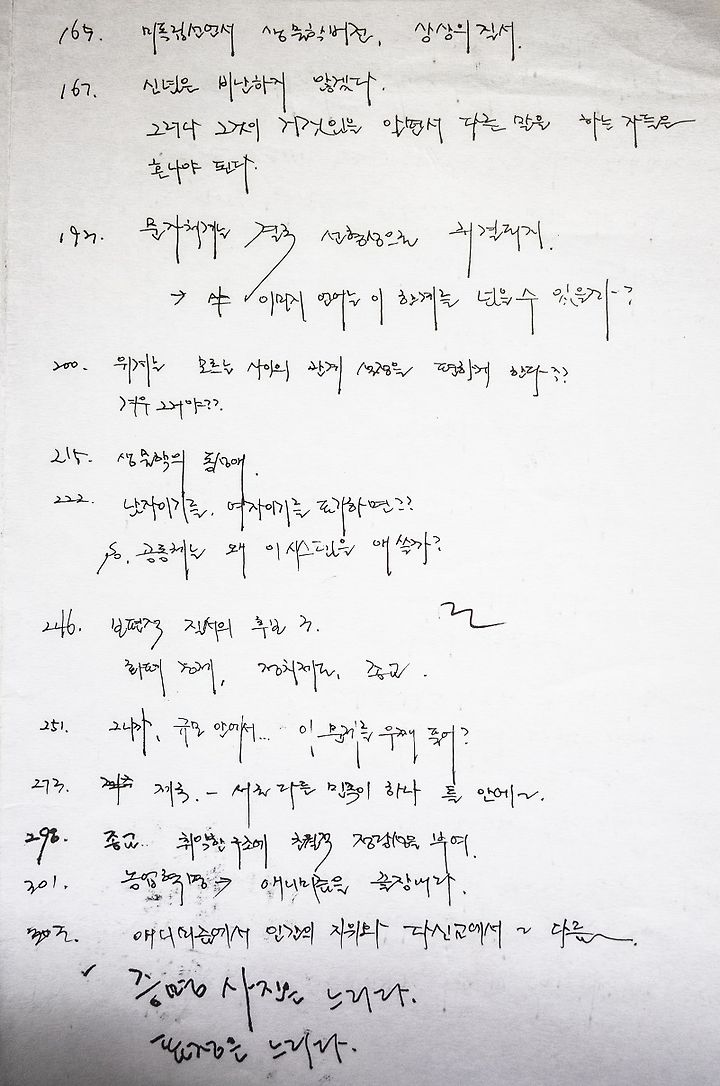 165. 미독립선언서 생물학버전. 상상의 질서.
167. 신념은 비난하지 않겠다.
그러나 그것이 거짓임을 알면서 다른 말을 하는 자들은
혼나야 된다.
192. 문자체계는 결국 선형성으로 귀결되지.
→ 이미지 언어는 이 한계를 넘을 수 있을까-?
200. 위계는 모르는 사이의 관계 설정을 편하게 한다??
겨우 그거야??.
215. 생물학의 동성애.
222. 남자이기를, 여자이기를 포기하면??
공동체는 왜 이 시스템을 애쓸까?
246. 보편적 질서의 후보 3.
화폐 경제, 정치제도, 종교.
251. 그니까, 규모 안에서... 이 문제를 우째 풀어?
273. 제국. - 서로 다른 민족이 하나 틀 안에~.
298. 종교. 취약한 구조에 초월적 정당성을 부여.
301. 농업혁명 → 애니미즘을 끝장내다.
애니미즘에서 인간의 지위와 다신교에서 ~ 다름
✓ 증명 사진은 느리다.
표정은 느리다.